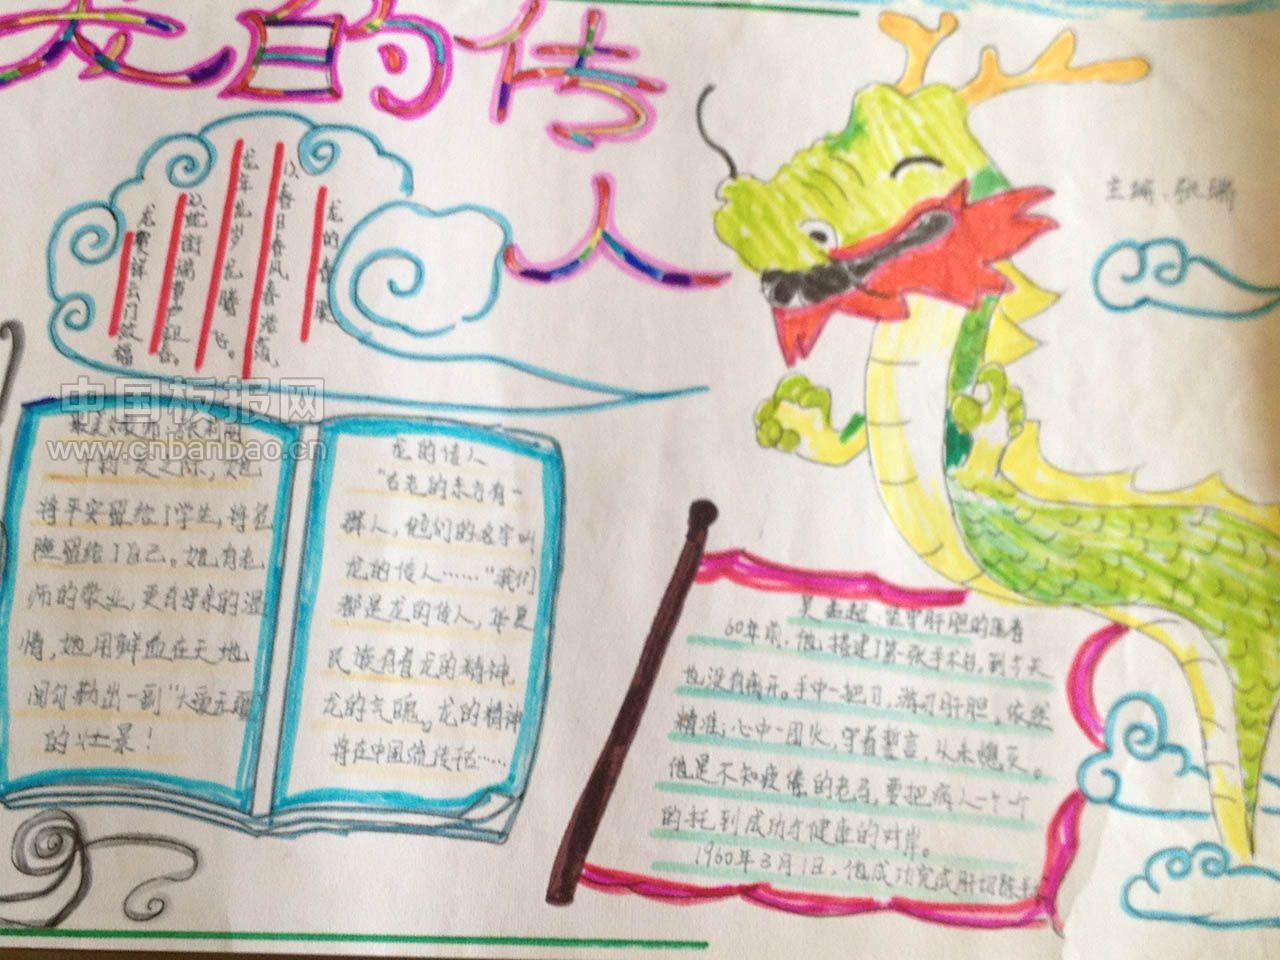 龙的传
人
主编、张
龙的春联
1、春日春风春浩荡,
龙年龙岁龙腾飞。
龙
中国板报网
www.cnbanbao.cn
将平安留给了学生,将危
险留给了自己。她有老
师的敬业,更有母亲的温
情,她用鲜血在天地
间勾勒出一副“大爱无疆”
的壮景!
龙的传人
“古老的东方有一
群人,他们的名字叫
龙的传人……“我们
都是龙的传人,华夏
民族有着龙的精神
龙的气魄。龙的精神
将在中国流传话……
吴孟超、坚守肝胆的医者
60年前,他搭建了第一张手术台,到今天
也没有离开。手中一把刀,游刃肝胆,依然
精准;心中一团火,守着誓言,从未熄灭。
他是不知疲倦的老马,要把病人一个个
的托到成功才健康的对岸。
1960年3月1日,他成功完成肝切除手